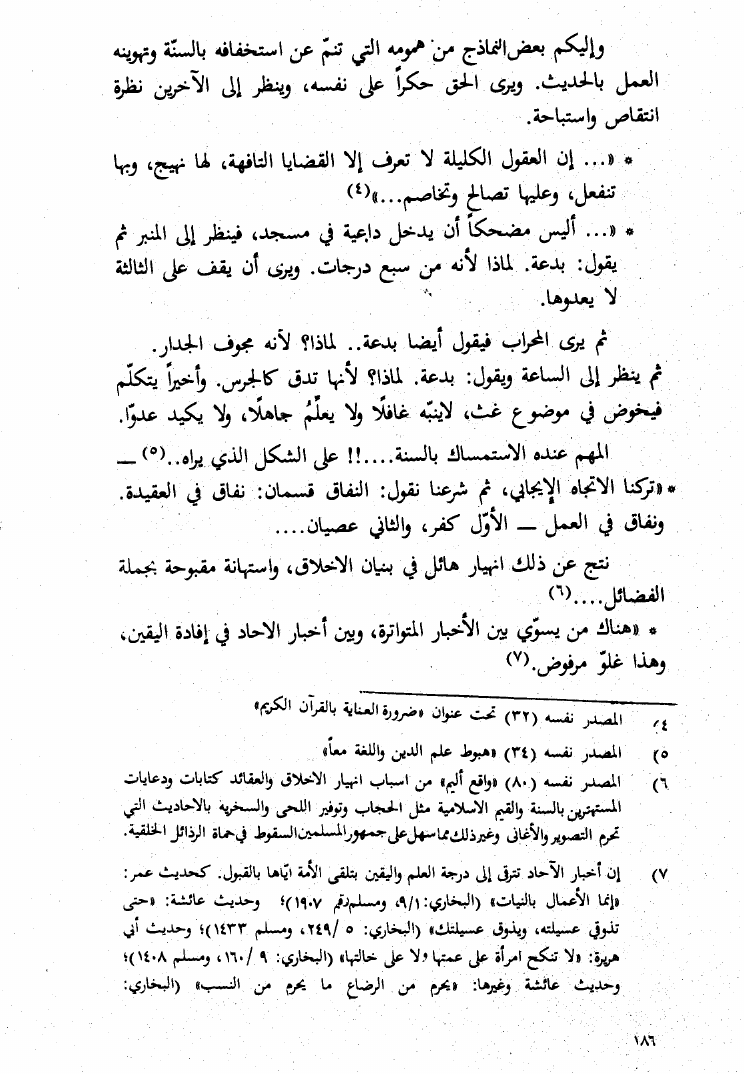 وإليكم بعض النماذج من همومه التي تنمّ عن استخفافه بالسنّة وتهوينه
العمل بالحديث. ويرى الحق حكراً على نفسه، وينظر إلى الآخرين نظرة
انتقاص واستباحة.
* «... إن العقول الكليلة لا تعرف إلا القضايا التافهة، لها نهيج، وبها
تنفعل، وعليها تصالح وتخاصم...»(٤)
* «... أليس مضحكاً أن يدخل داعية في مسجد، فينظر إلى المنبر ثم
يقول: بدعة. لماذا لأنه من سبع درجات. ويرى أن يقف على الثالثة
لا يعدوها.
ثم يرى المحراب فيقول أيضا بدعة.. لماذا؟ لأنه مجوف الجدار.
ثم ينظر إلى الساعة ويقول: بدعة. لماذا؟ لأنها تدق كالجرس. وأخيراً يتكلّم
فيخوض في موضوع غث، لاينبّه غافلًا ولا يعلِّمُ جاهلًا، ولا يكيد عدوّا.
المهم عنده الاستمساك بالسنة....!! على الشكل الذي يراه..(٥) ــ
* «تركنا الاتجاه الإيجابي، ثم شرعنا نقول: النفاق قسمان: نفاق في العقيدة.
ونفاق في العمل ــ الأوّل كفر، والثاني عصيان....
نتج عن ذلك انهيار هائل في بنيان الاخلاق، واستهانة مقبوحة بجملة
الفضائل....(٦)
* «هناك من يسوّي بين الأخبار المتواترة، وبين أخبار الاحاد في إفادة اليقين،
وهذا غلوّ مرفوض.(٧)
٤) المصدر نفسه (٣٢) تحت عنوان «ضرورة العناية بالقرآن الكريم»
٥) المصدر نفسه (٣٤) «هبوط علم الدين واللغة معاً»
٦) المصدر نفسه (٨٠) «واقع أليم» من اسباب انهيار الاخلاق والعقائد كتابات ودعايات
المستهترين بالسنة والقيم الاسلامية مثل الحجاب وتوفير اللحى والسخريه بالاحاديث التي
تحرم التصوير والأغانى وغير ذلك مما سهل على جمهور المسلمين السقوط في حماة الرذائل الخلقية.
٧) إن أخبار الآحاد تترقى إلى درجة العلم واليقين بتلقى الأمة ايّاها بالقبول. كحديث عمر:
«إنما الأعمال بالنيات» (البخاري: ٩/١، ومسلم رقم ١٩٠٧)؛ وحديث عائشة: «حتى
تذوقي عسيلته، ويذوق عسيلتك» (البخاري: ٥ /٢٤٩، ومسلم ١٤٣٣)؛ وحديث أبي
هريرة: «لا تنكح امرأة على عمتها ولا على خالتها» (البخاري: ٩ /١٦٠، ومسلم ١٤٠٨)؛
وحديث عائشة وغيرها: «يحرم من الرضاع ما يحرم من النسب» (البخاري:
١٨٦